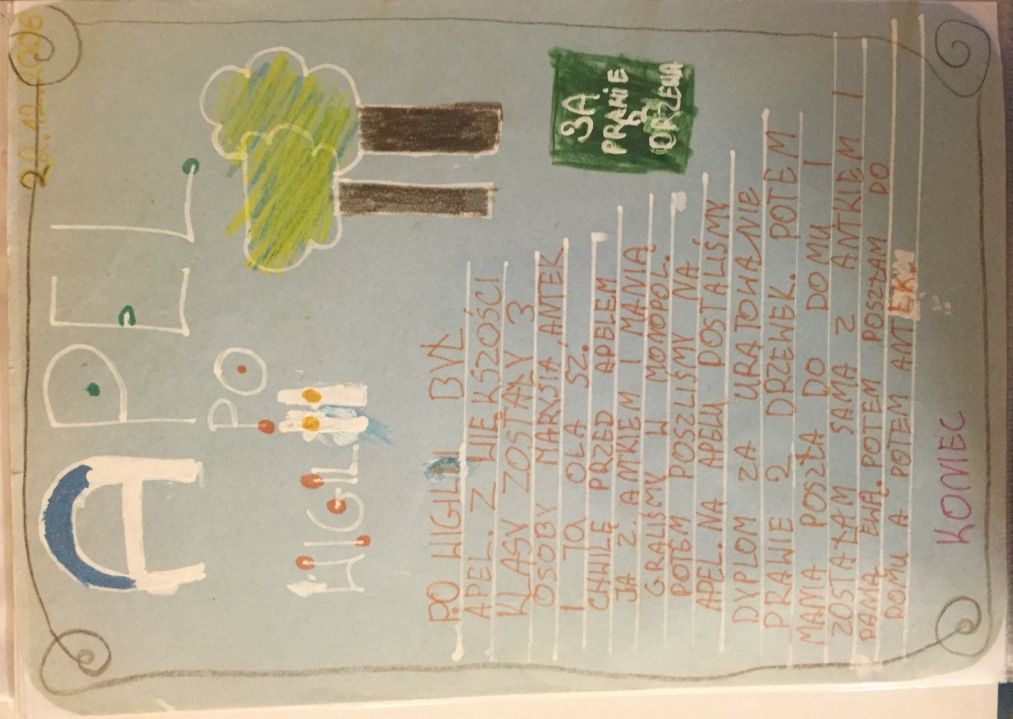 APEL
PO
WIGILII
3A
PRAWIE
2
DRZEWA
PO WIGILII BYŁ
APEL. Z WIĘKSZOŚCI
KLASY ZOSTAŁY 3
OSOBY MARYSIA, ANTEK
I JA OLA SZ.
CHWILĘ PRZED APELEM
JA Z ANTKIEM I MANIĄ
GRALIŚMY W MONOPOL.
POTEM POSZLIŚMY NA
APEL. NA APELU DOSTALIŚMY
DYPLOM ZA URATOWANIE
PRAWIE 2 DRZEWEK. POTEM
MANIA POSZŁA DO DOMU I
ZOSTAŁAM SAMA Z ANTKIEM I
PANIĄ EWĄ. POTEM POSZŁAM DO
DOMU A POTEM ANTEK.
KONIEC